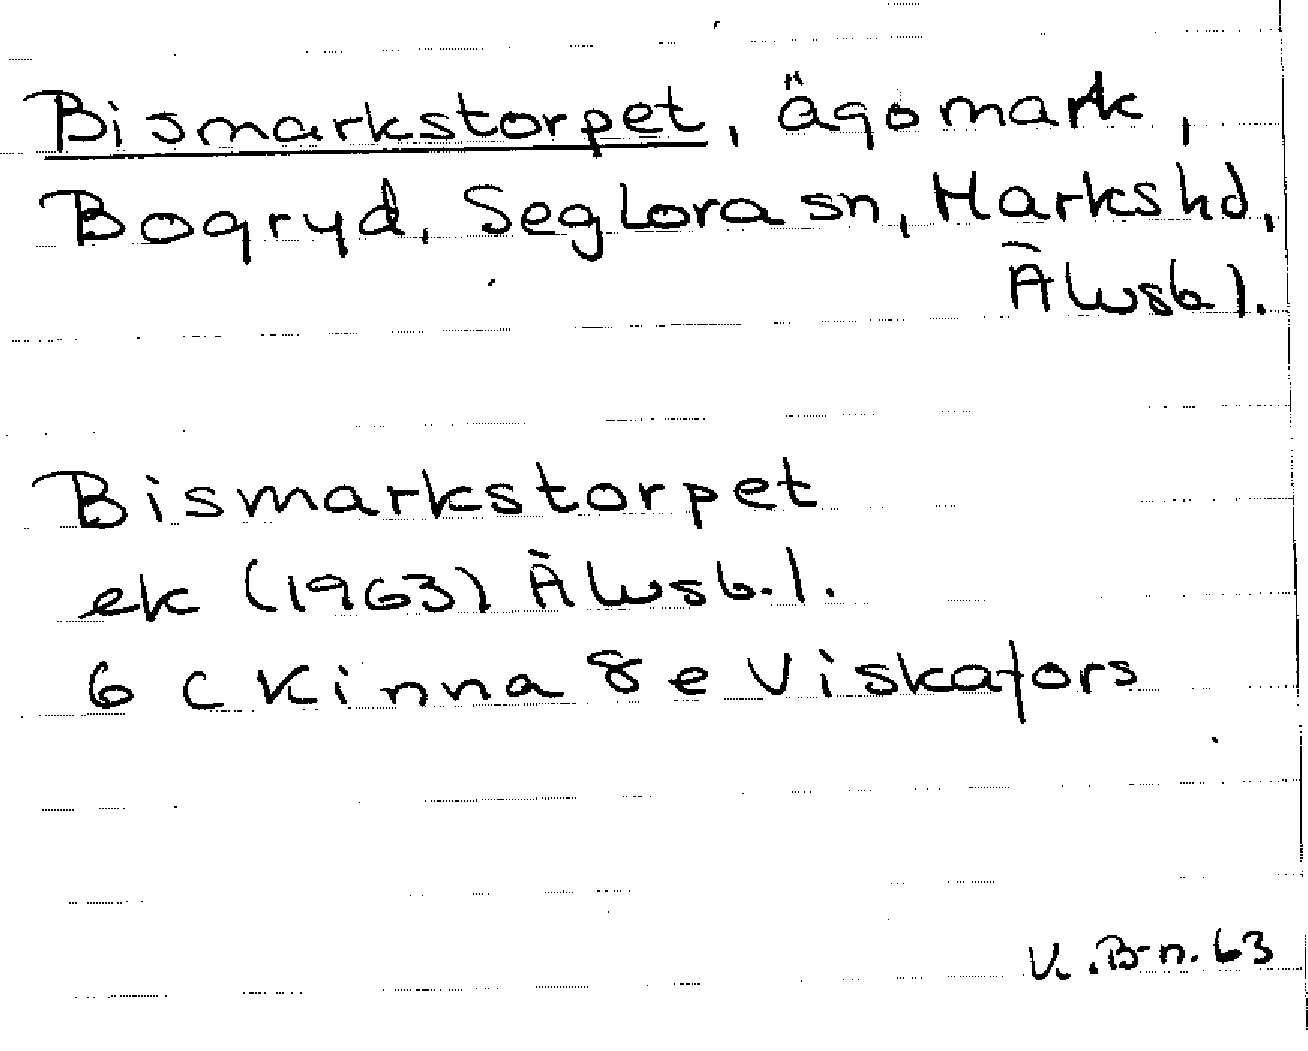 Bismarkstorpet, ägomark,
Bogryd, Seglora sn, Marks hd,
Älvsb l.
Bismarkstorpet
ek (1963) Älvsb. l.
6 C Kinna 8 e Viskafors
V. B-n. 63